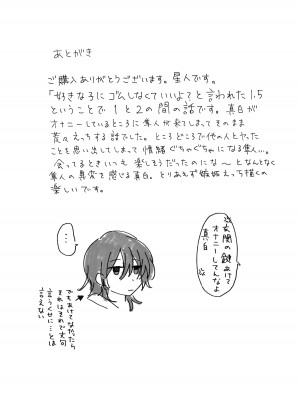 あとがき
ご購入ありがとうございます。星人です。
「好きなら ゴムしなくていいよ」と言われた1.5
ということで 1と2の間の話です。真白が
オナニーしているところに隼人が来てしまってそのまま
荒々えっちする話でした。ところどころで他の人とヤった
ことを思い出してしまって情緒ぐちゃぐちゃになる隼人…。
会ってるときいつも楽しそうだったのにな〜となんとなく
隼人の異変を感じる真白。とりあえず嫉妬えっち描くの
楽しいです。
玄関の鍵あけて
オナニーしてんなよ
真白
…
でもあけてなかったら
それはそれで文句
言うくせに…とは
言えない